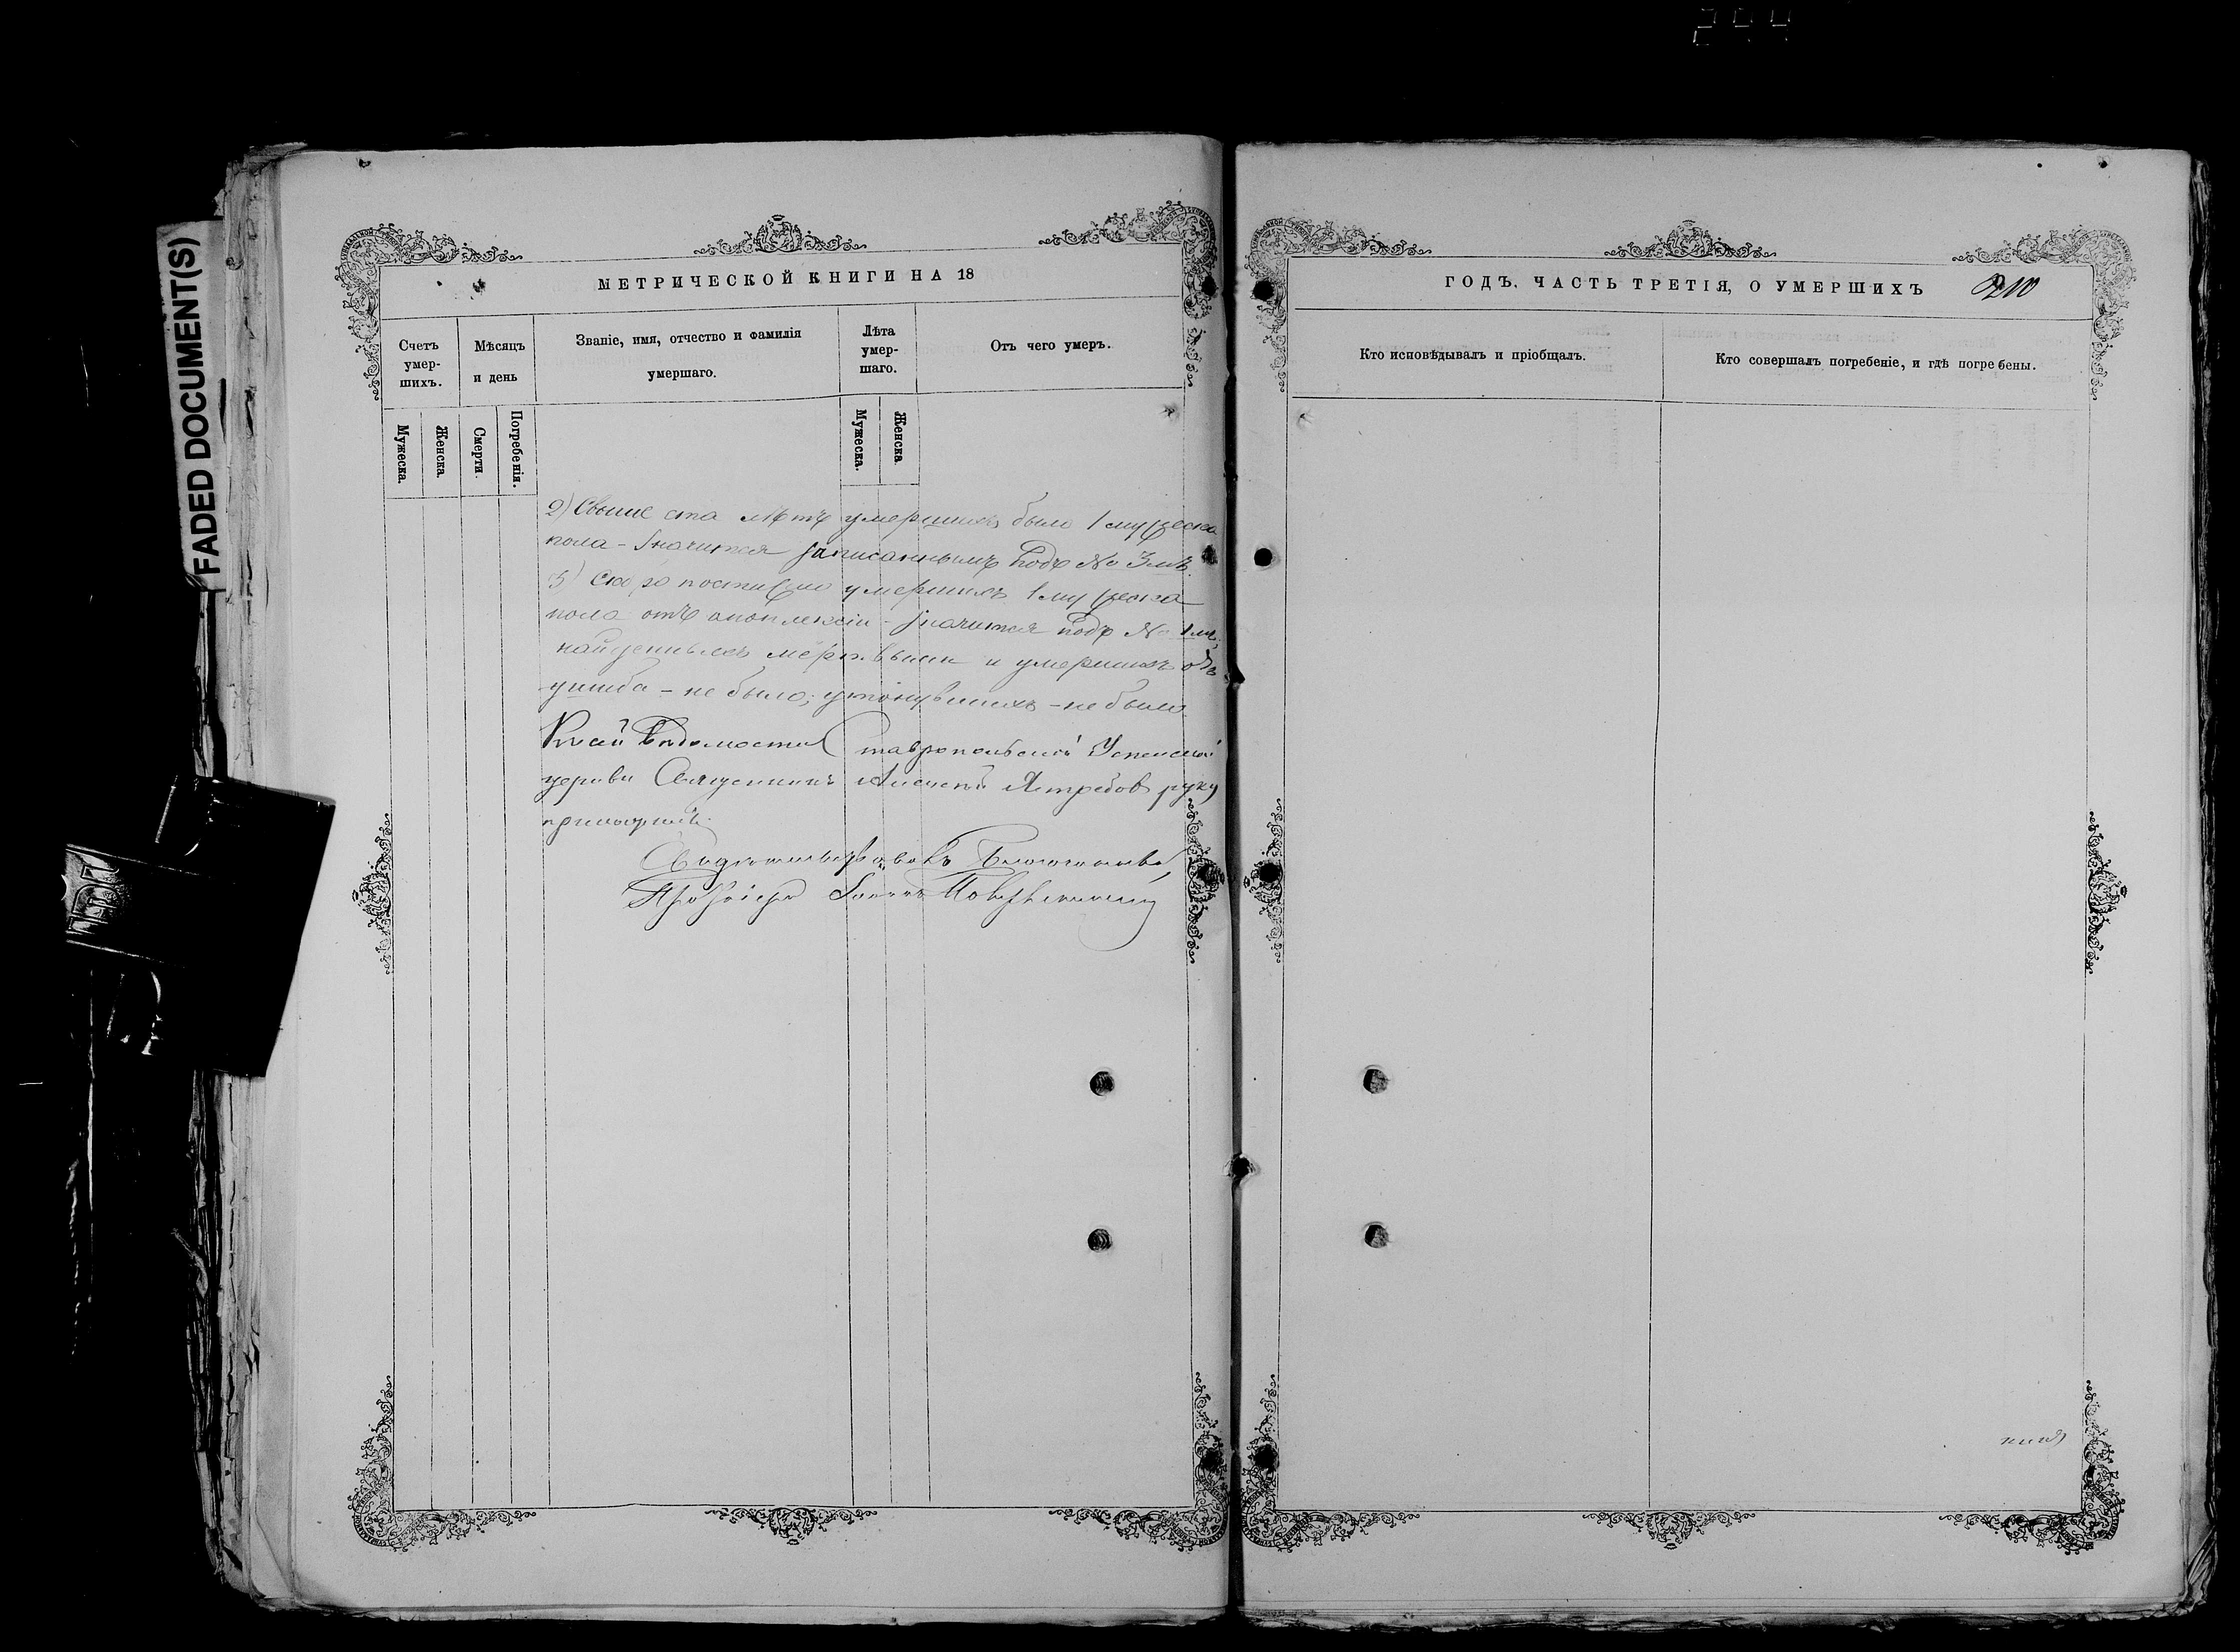 244
FADED DOCUMENT(S)
МЕТРИЧЕСКОЙ КНИГИ НА 18
Счетъ умер-шихъ.
Мѣсяцъ и день
Званіе, имя, отчество и фамилія умершаго.
Лѣта умер-шаго.
Отъ чего умеръ.
Мужеска.
Женска.
Смерти.
Погребенія.
Мужеска.
Женска.
2) Свыше ста лѣтъ умершихъ было 1 мужеска
пола - значится записаннымъ подъ № 3мъ.
3) Скоропостижно умершихъ 1 мужеска
пола отъ апоплексіи - значится подъ № 1мъ,
найденныхъ мертвыми и умершихъ отъ
ушиба - не было; утонувшихъ - не было
Къ сей Вѣдомости Ставропольской Успенской
церкви Священникъ Алексѣй Ястребовъ руку
приложилъ.
Свидѣтельствовалъ Благочинный,
Протоіерей Іоаннъ
ГОДЪ. ЧАСТЬ ТРЕТІЯ, О УМЕРШИХЪ
210
Кто исповѣдывалъ и пріобщалъ.
Кто совершалъ погребеніе, и гдѣ погребены.